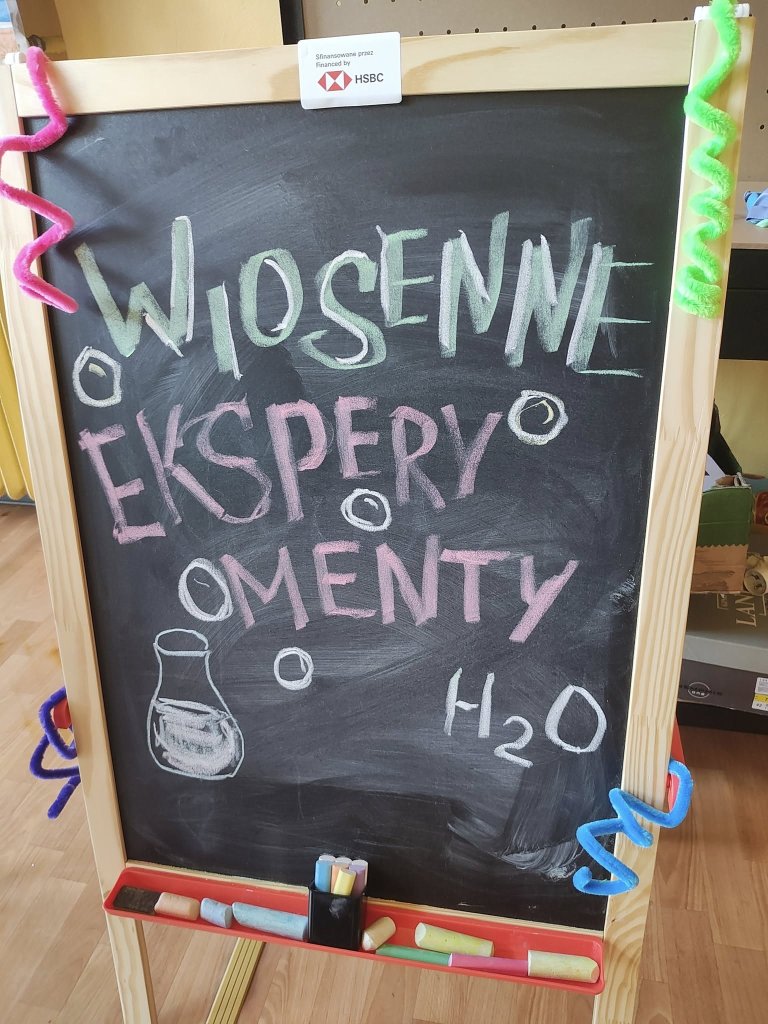 Sfinansowane przez
Financed by
HSBC
WIOSENNE
EKSPERY
MENTY
H₂O
LAN